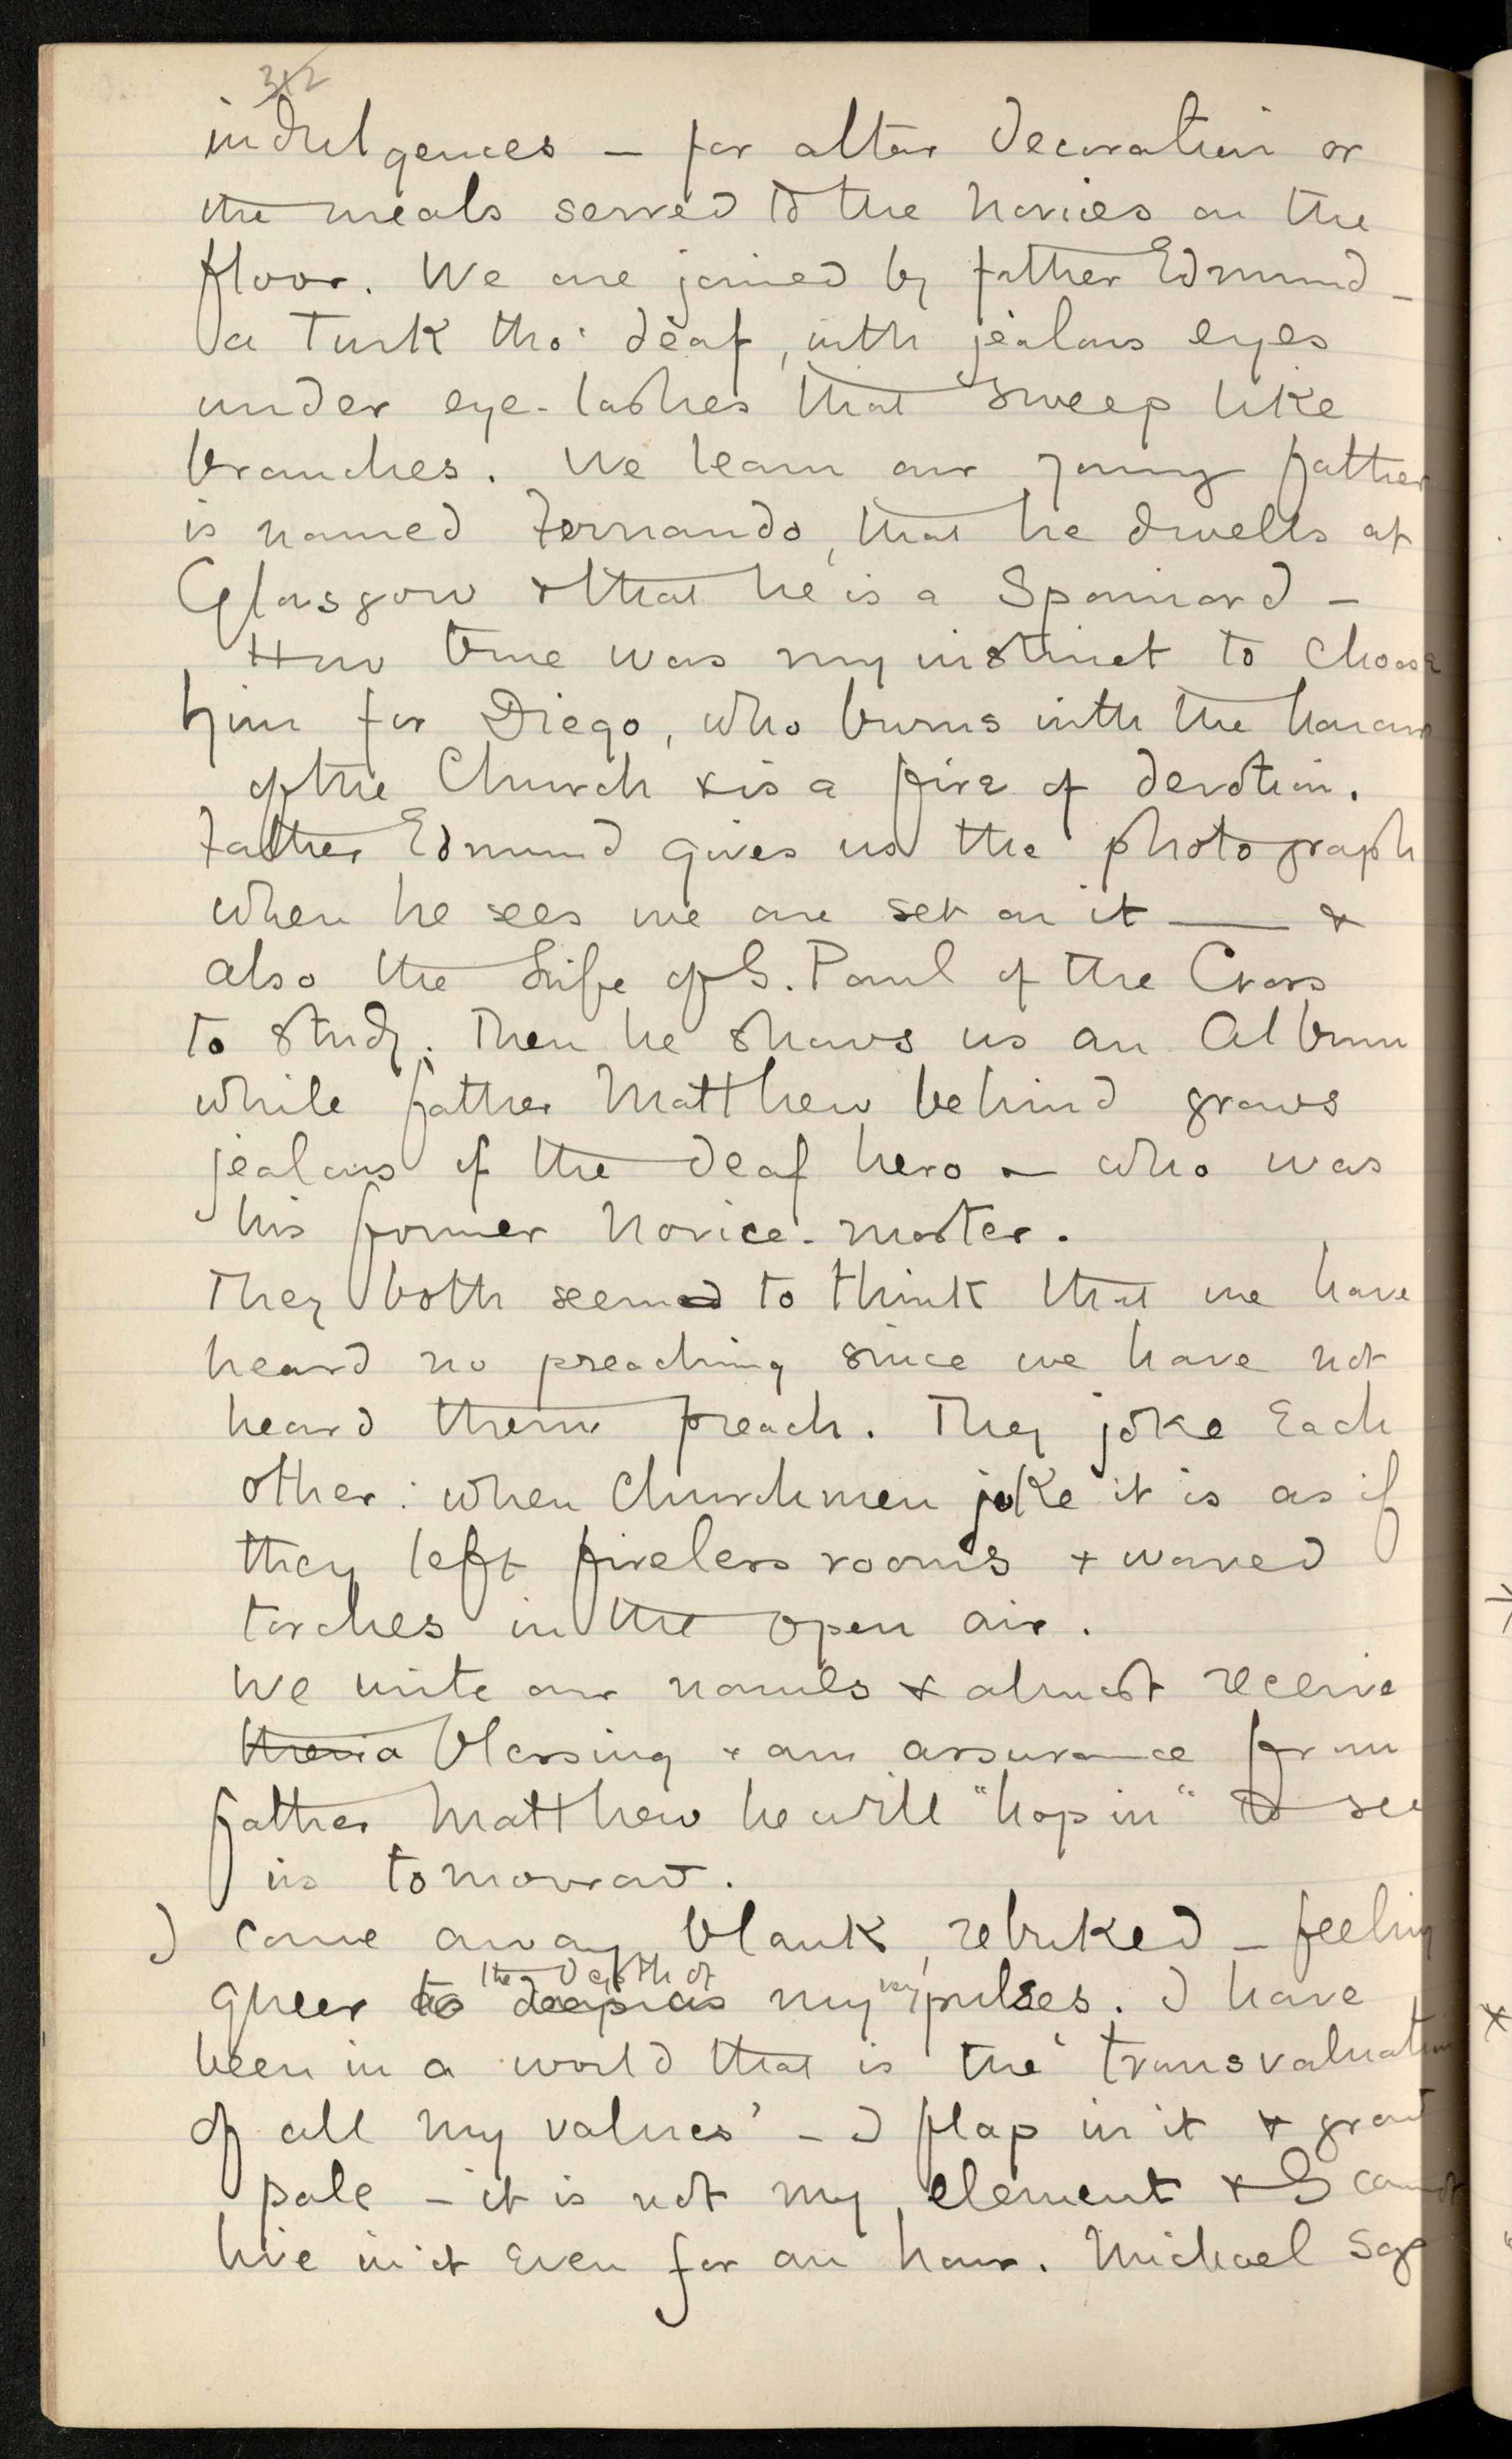 312
indulgences — for altar decoration or
the meals served to the novices on the
floor. We are joined by father Edmund –
a Turk tho' deaf, with jealous eyes
under eye-lashes that sweep like
branches. We learn our young father
is named Fernando, that he dwells at
Glasgow & that he is a Spaniard –
How true was my instinct to choose
him for Diego, who burns with the honour
of the Church & is a fire of devotion.
Father Edmund gives us the photograph
when he sees we are set on it — &
also the Life of S. Paul of the Cross
to study. Then he shows us an Album
while father Matthew behind grows
jealous of the deaf hero – who was
his former novice-master.
They both seemed to think that we have
heard no preaching since we have not
heard them preach. They joke Each
other: when Churchmen joke it is as if
they left fireless rooms & waved
torches in the open air.
We write our names & almost receive
a blessing & an assurance from
father Matthew he will "hop in" to see
us tomorrow.
I come away blank, rebuked – feeling
the depth of very
queer to deep as my pulses. I have
been in a world that is the 'transvaluation
of all my values' – I flap in it & grow
pale – it is not my element & I cannot
live in it Even for an hour. Michael says